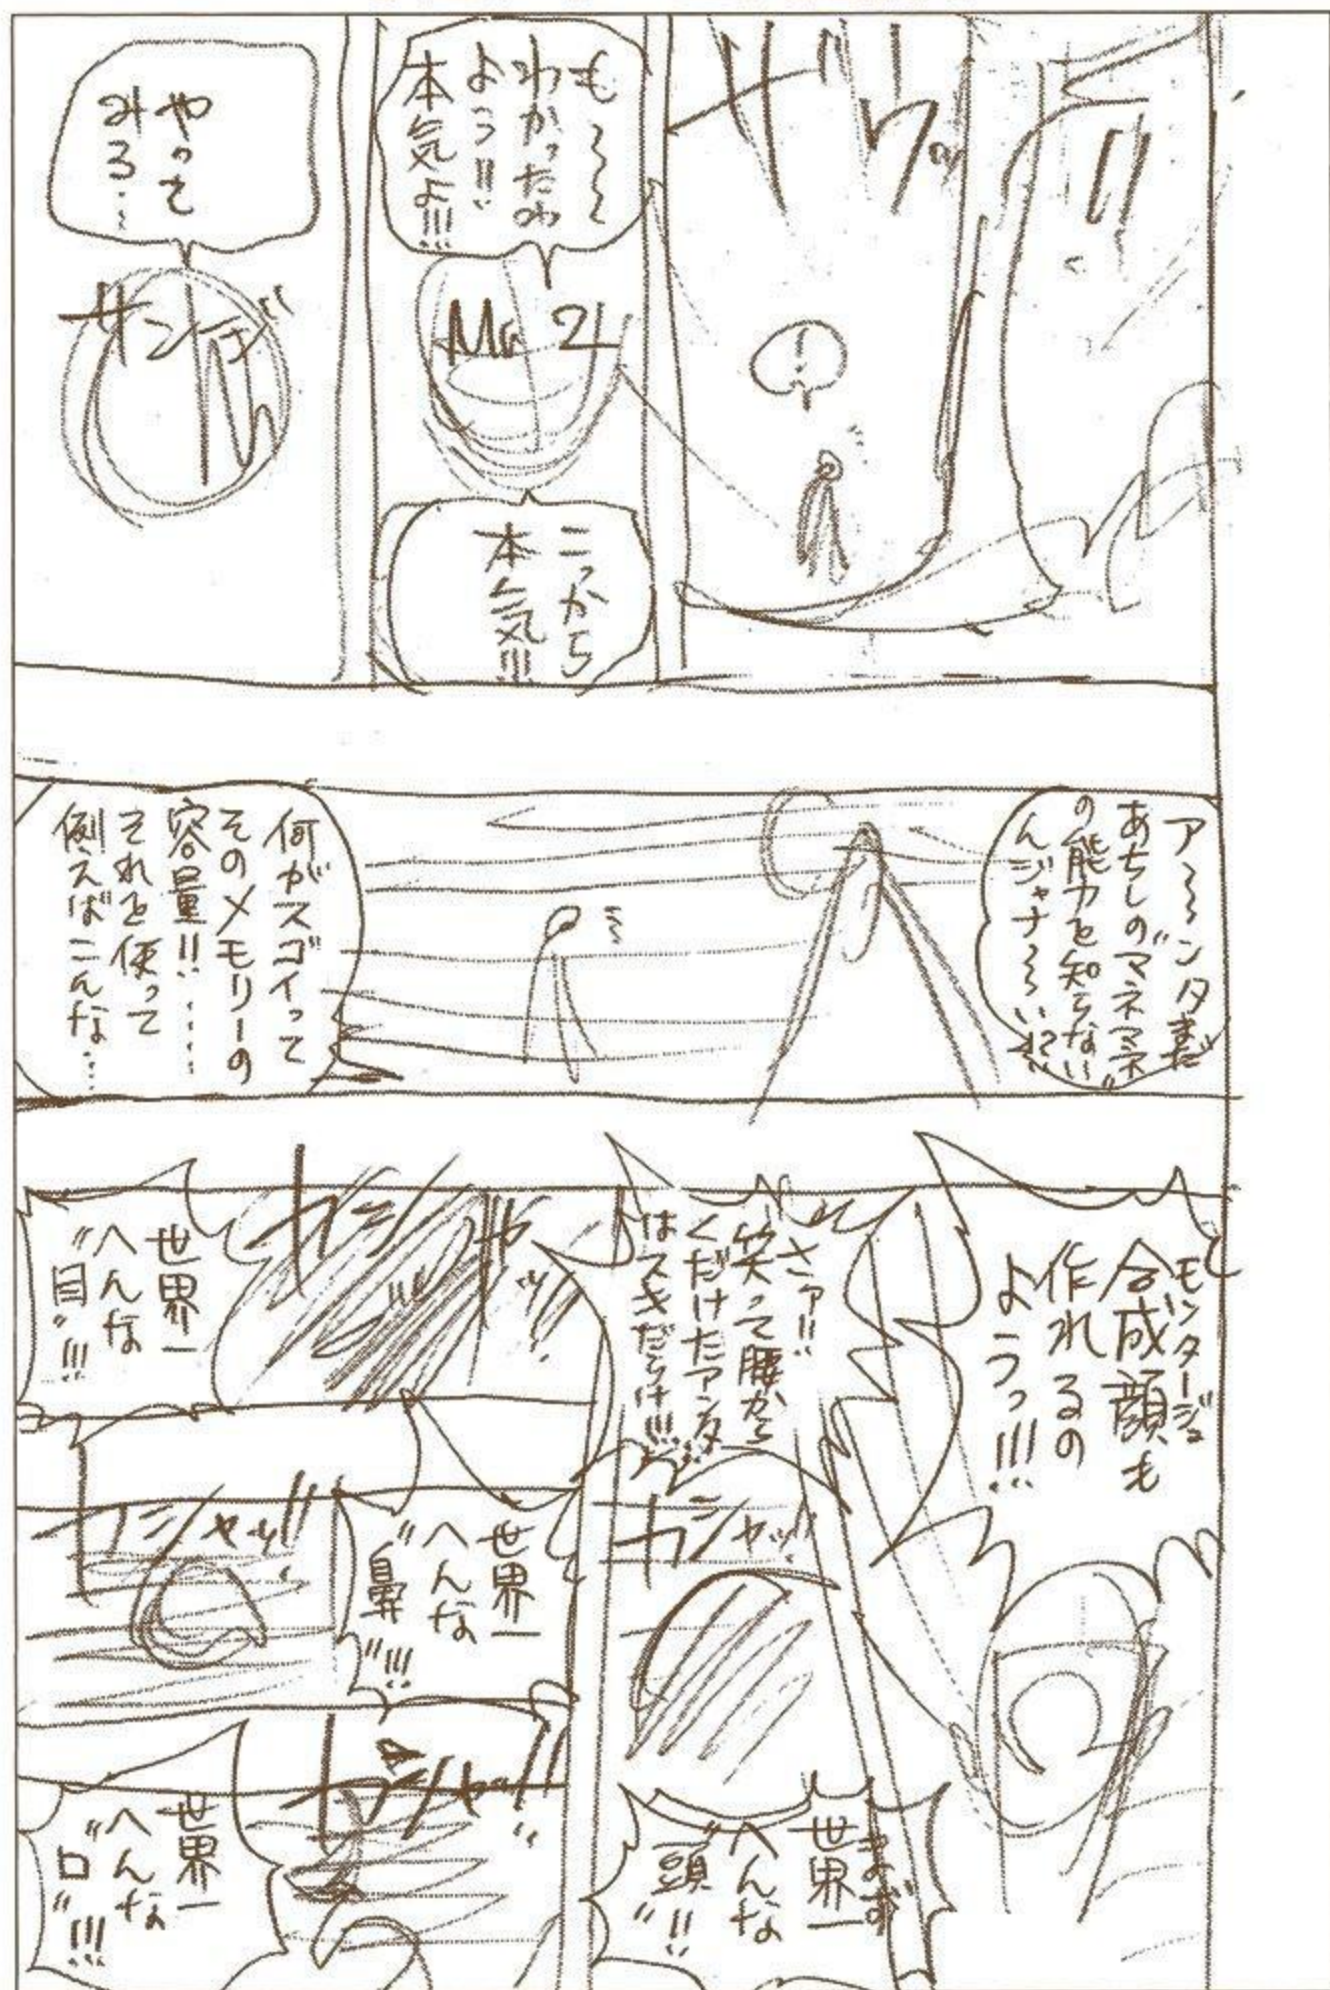 ザワッ
も〜〜
わかったわ
よう!!
本気よ!!!
Mr 2
こっから
本気!!!
やって
みろ…
サンジ
ア〜〜ンタまだ
あちしのマネマネ
の能力を知らない
んジャナ〜〜い
何がスゴイって
そのメモリーの
容量!!……
それを使って
例えばこんな…
モンタージュ
合成顔も
作れるの
ようっ!!!
さァ!!
笑って腰から
くだけたアンタ
はスキだらけ!!!
カシャッ
まず
世界一
へんな
“頭”!!
カシャッ
世界一
へんな
“目”!!!
世界一
へんな
“鼻”!!!
カシャッ!!
カシャッ!!
世界一
へんな
“口”!!!